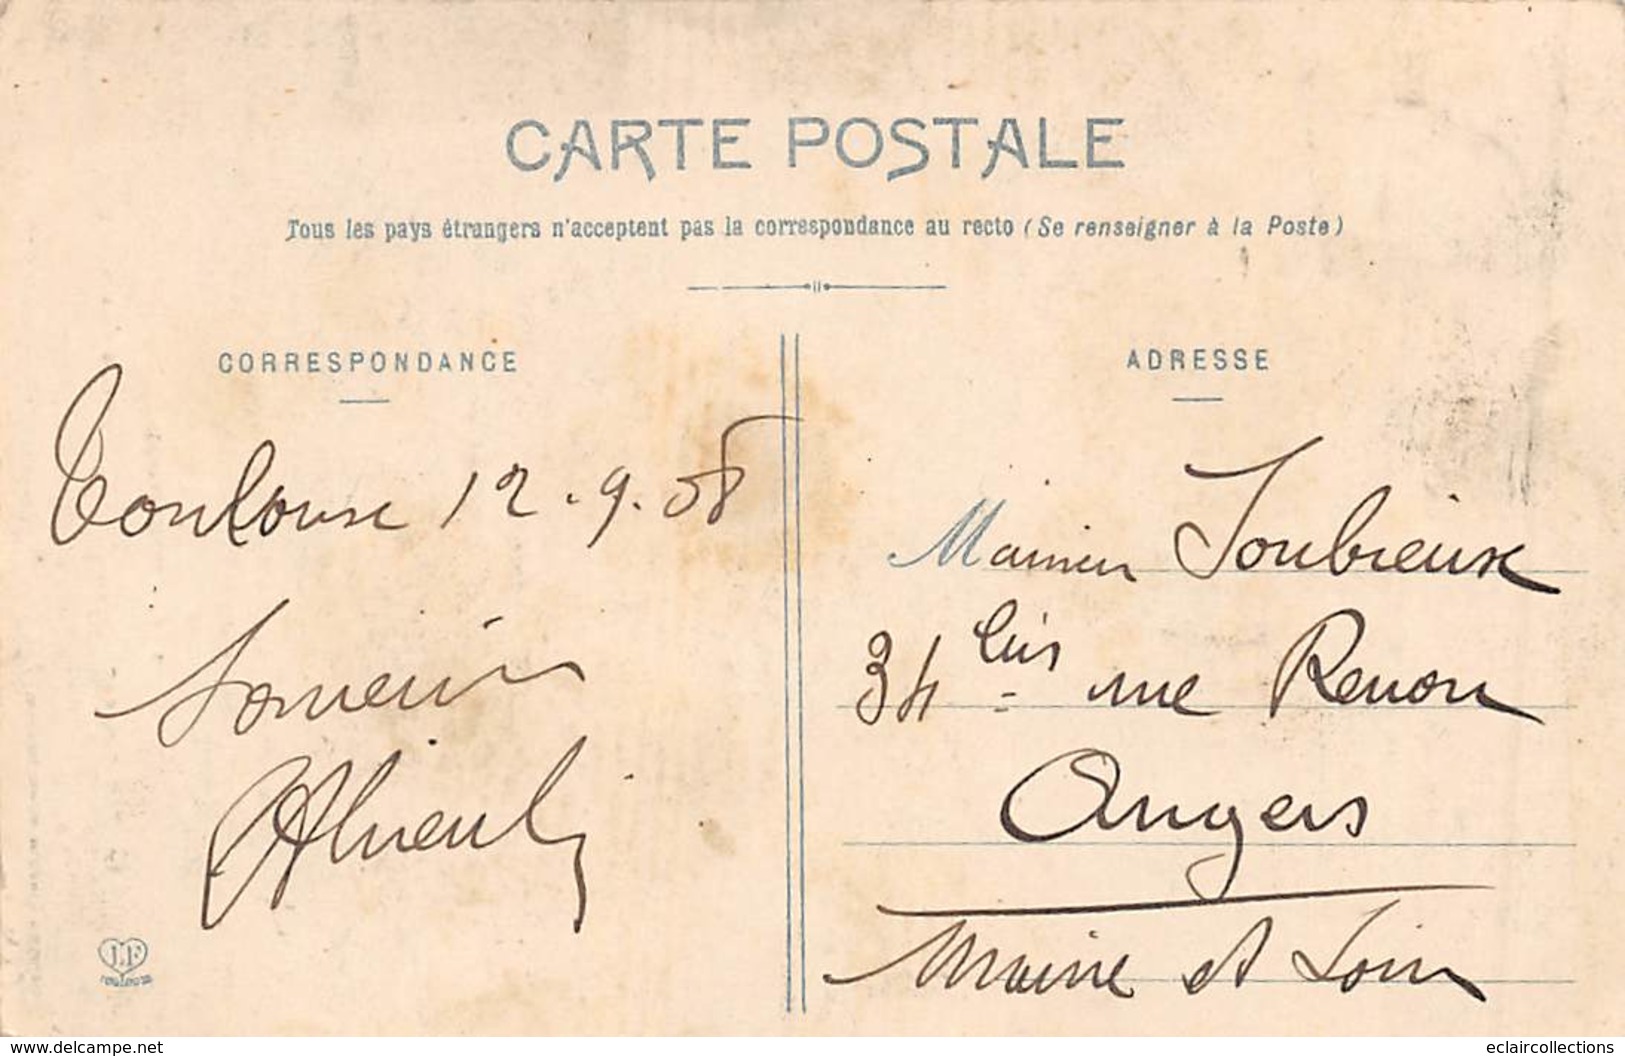 CARTE POSTALE
Tous les pays étrangers n'acceptent pas la correspondance au recto (Se renseigner à la Poste)
CORRESPONDANCE
Toulouse 12.9.08
Souvenir
ADRESSE
Joubieux
34 bis rue Renou
Angers
Maine et Loir
L.F
www.delcampe.net
eclaircollections